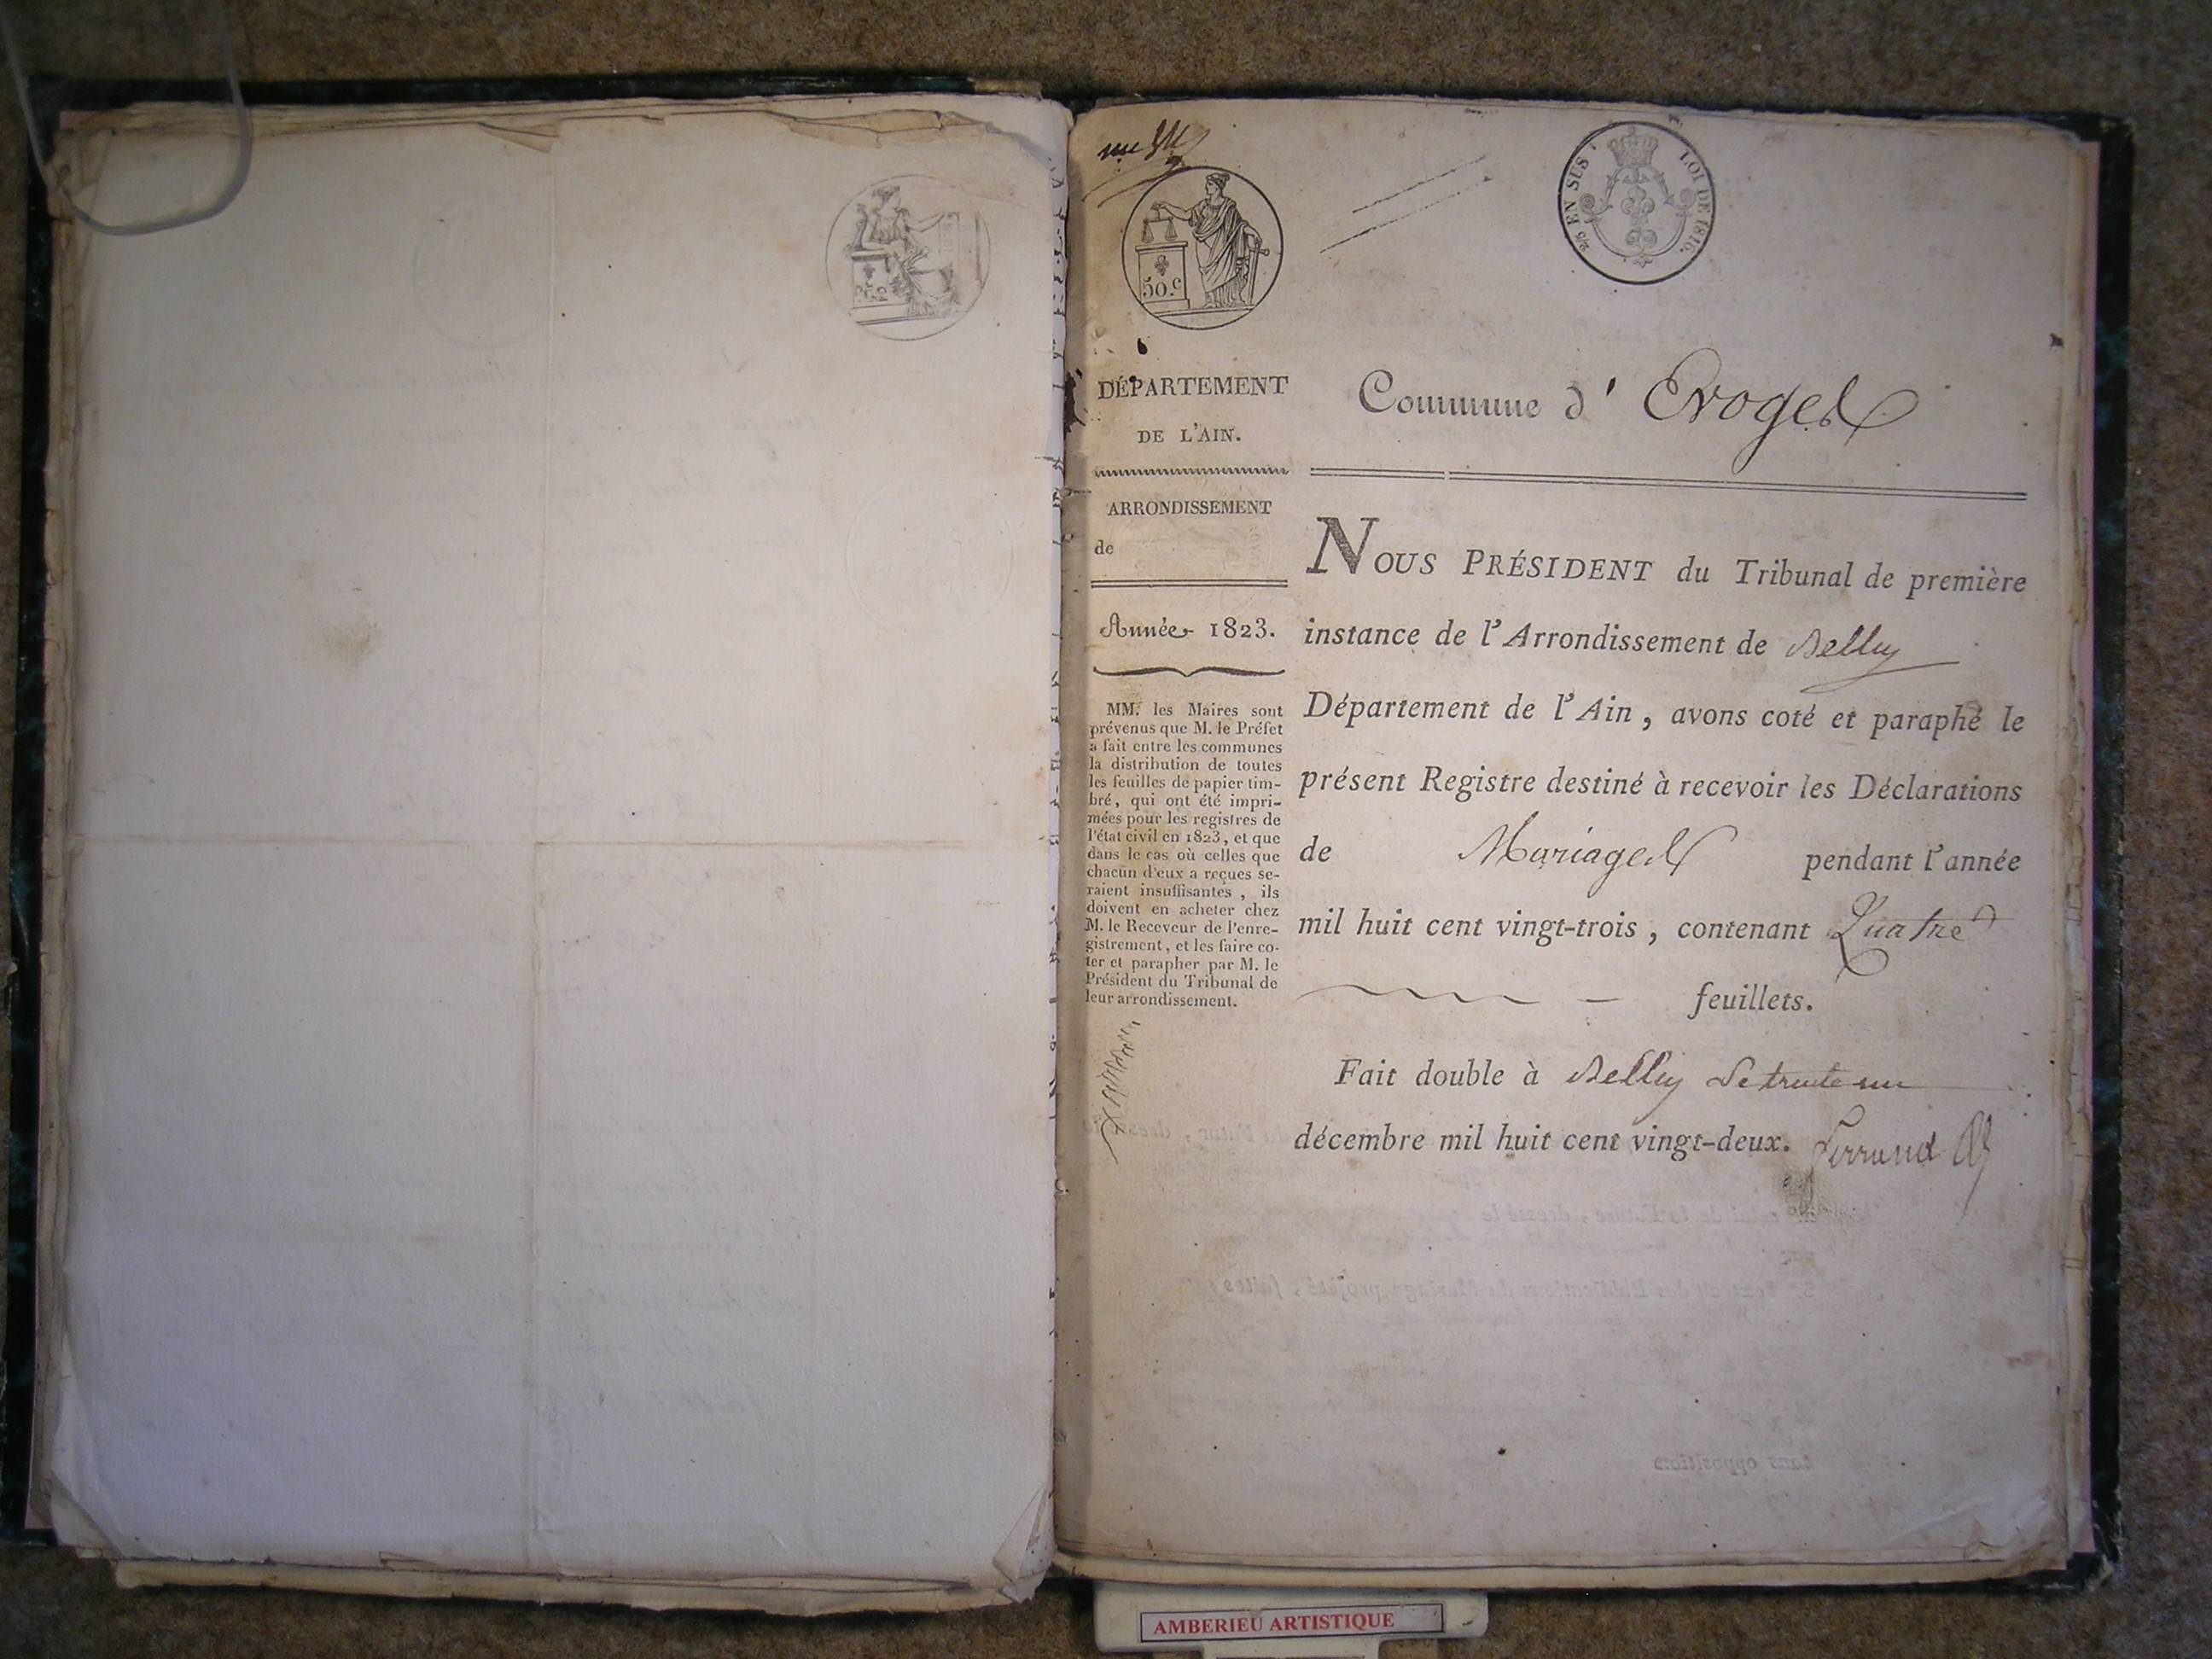 50.c
2/5 EN SUS
LOI DE 1816.
DÉPARTEMENT
DE L'AIN.
ARRONDISSEMENT
de
Année 1823.
MM. les Maires sont
prévenus que M. le Préfet
a fait entre les communes
la distribution de toutes
les feuilles de papier tim-
bré, qui ont été impri-
mées pour les registres de
l'état civil en 1823, et que
dans le cas où celles que
chacun d'eux a reçues se-
raient insuffisantes, ils
doivent en acheter chez
M. le Receveur de l'enre-
gistrement, et les faire co-
ter et parapher par M. le
Président du Tribunal de
leur arrondissement.
Commune d' Evoges
NOUS PRÉSIDENT du Tribunal de première
instance de l'Arrondissement de Belley
Département de l'Ain, avons coté et paraphé le
présent Registre destiné à recevoir les Déclarations
de Mariages pendant l'année
mil huit cent vingt-trois, contenant Quatre
feuillets.
Fait double à Belley Le trente un
décembre mil huit cent vingt-deux.
AMBERIEU ARTISTIQUE